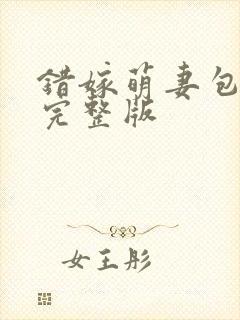 错嫁萌妻包
完整版
女王彤